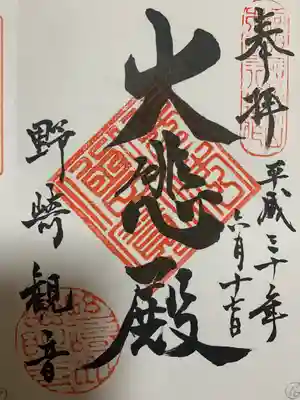 奉拝
平成三十年
六月十七日
大悲殿
野崎観音